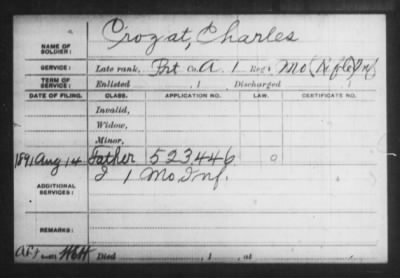 NAME OF SOLDIER: Crozat, Charles
SERVICE: Late rank, Pvt Co. A, 1 Reg't Mo (Rifle) Inf
TERM OF SERVICE: Enlisted , 1 , Discharged , 1
DATE OF FILING. CLASS. APPLICATION NO. LAW. CERTIFICATE NO.
Invalid,
Widow,
Minor,
1891 Aug 14 Father 523446
ADDITIONAL SERVICES: I 1 Mo Inf.
REMARKS:
Died , 1 , at